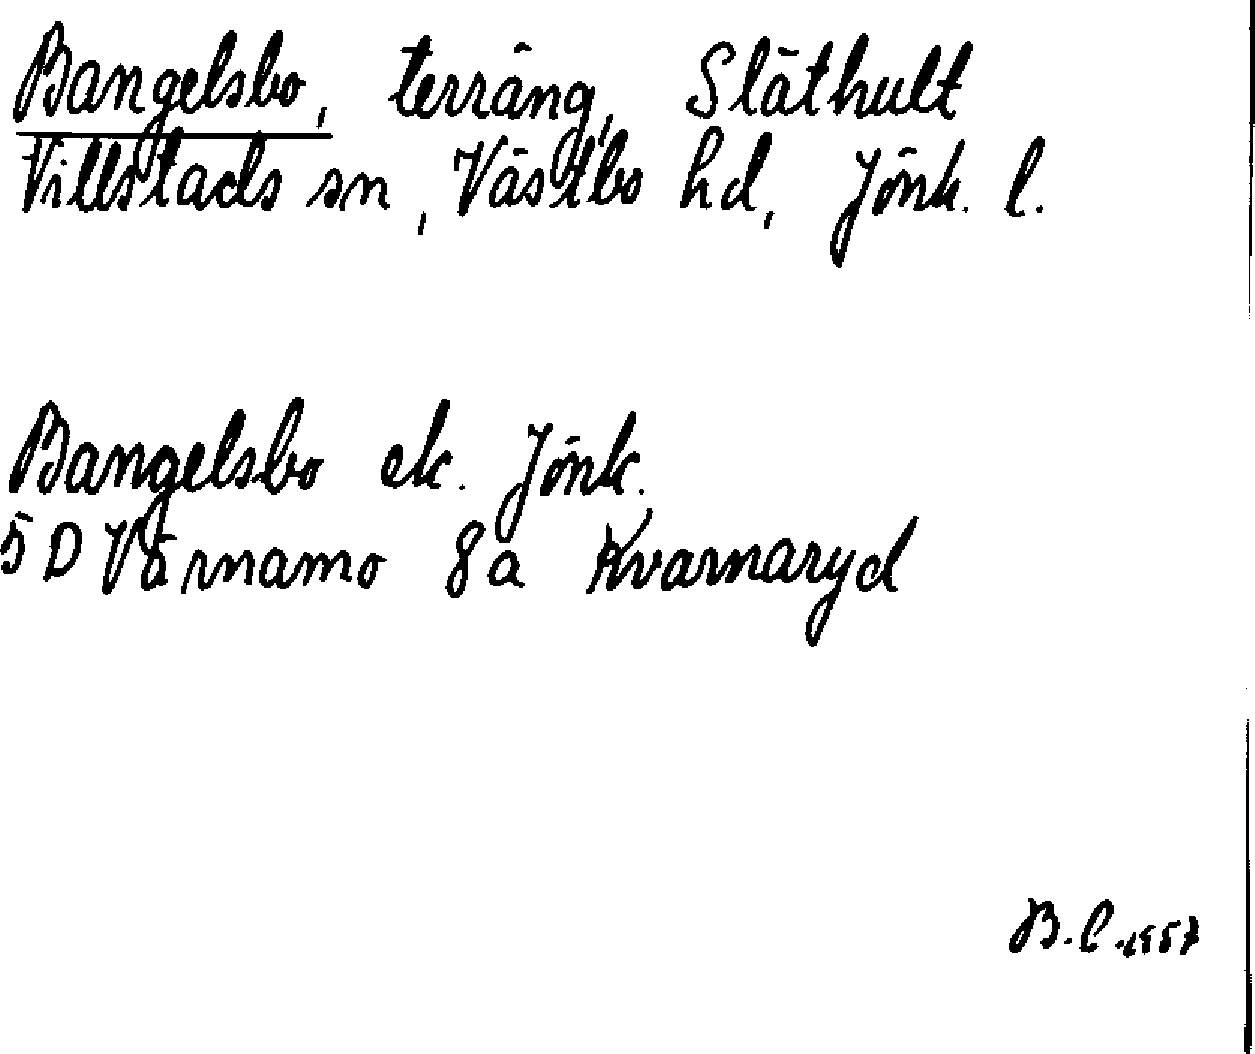 Bangelsbo, terräng, Släthult
Villstads sn, Västbo hd, Jönk. l.
Bangelsbo ek. Jönk.
5 D Värnamo 8 a Kvarnaryd
B.L. 1957